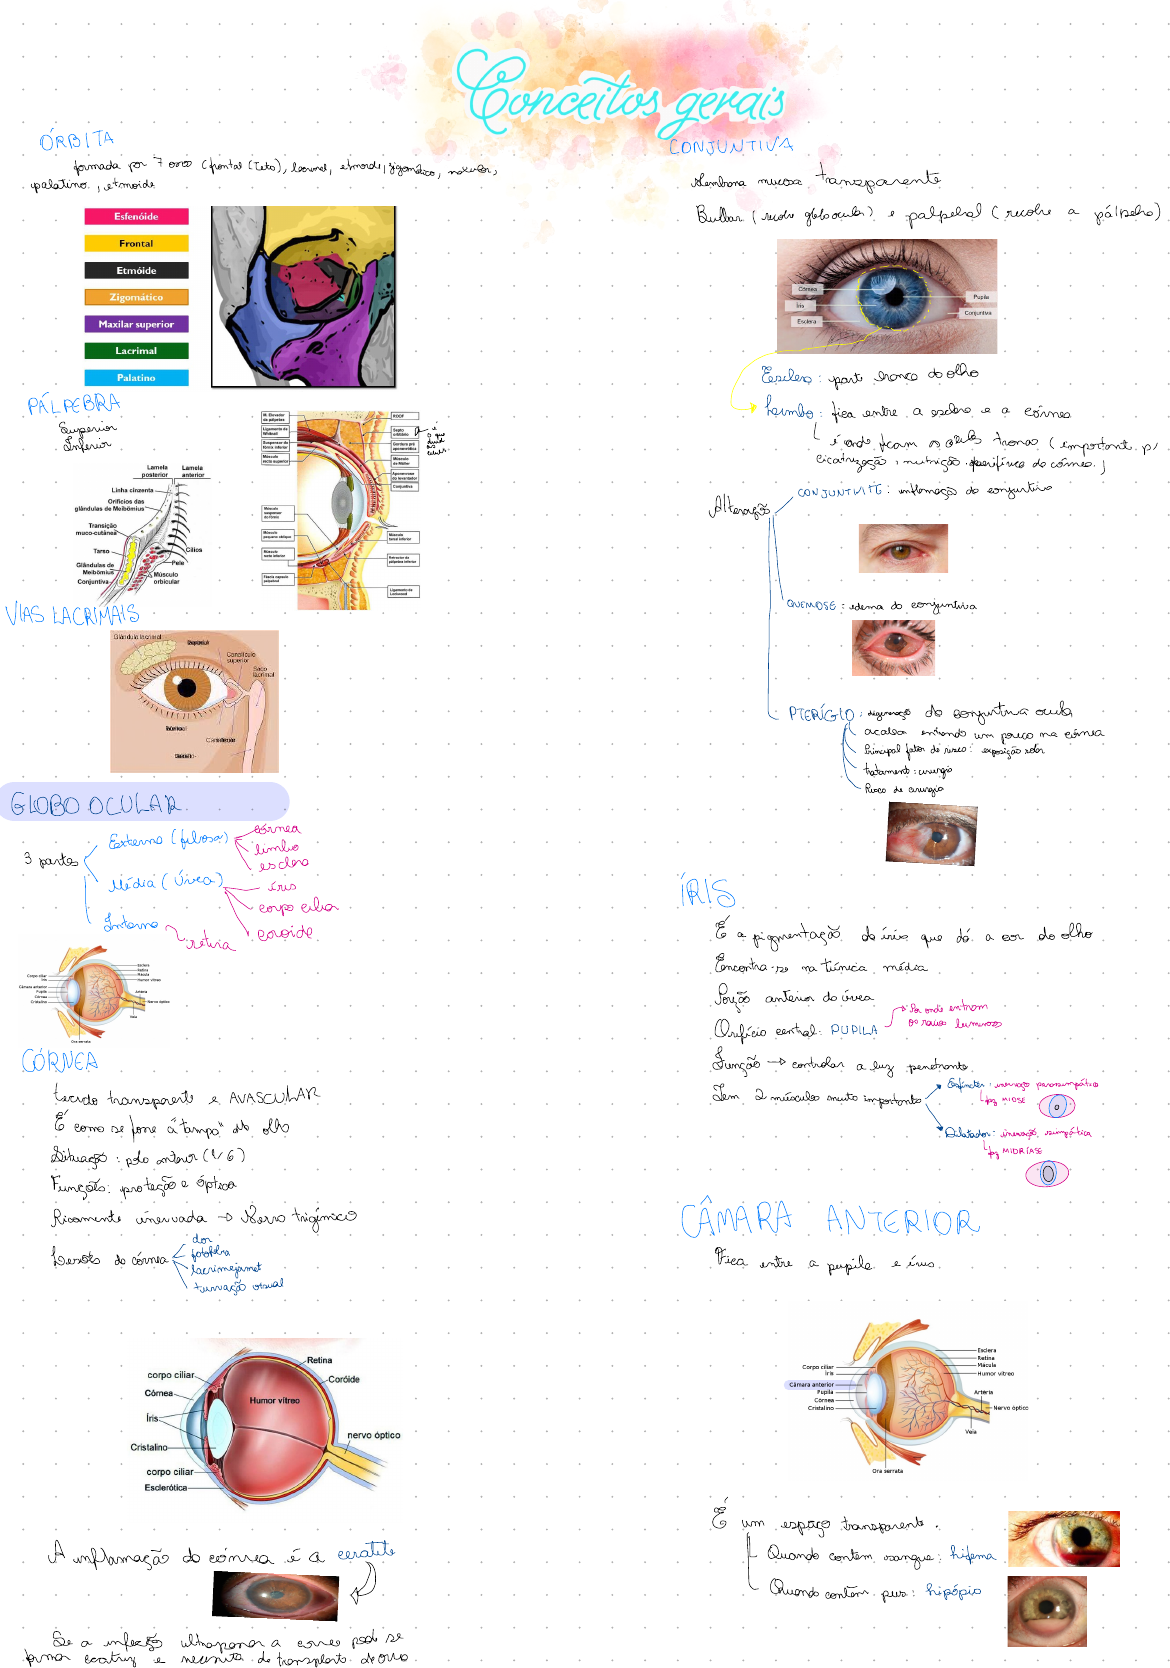 Conceitos gerais
ÓRBITA
formada por 7 ossos (frontal (teto), lacrimal, etmoide, zigomático, maxilar,
palatino, etmoide
Esfenóide
Frontal
Etmóide
Zigomático
Maxilar superior
Lacrimal
Palatino
PÁLPEBRA
Superior
Inferior
Lamela posterior
Lamela anterior
Linha cinzenta
Orifícios das glândulas de Meibômius
Transição muco-cutânea
Tarso
Glândulas de Meibômius
Conjuntiva
Cílios
Pele
Músculo orbicular
M. Elevador da pálpebra
Ligamento de Whitnall
Músculo recto superior
ROOF
Septo orbitário
Gordura pré aponevrótica
Músculo de Muller
Aponevrose do levantador
Conjuntiva
Músculo pequeno oblíquo
Músculo recto inferior
Músculo tarsal inferior
Ligamento de Lockwood
VIAS LACRIMAIS
Glândula lacrimal
Canalículo superior
Saco lacrimal
GLOBO OCULAR
3 partes
Externa (fibrosa)
córnea
limbo
esclera
Média (Úvea)
íris
corpo ciliar
coroide
Interna
retina
Corpo ciliar
Íris
Câmara anterior
Pupila
Córnea
Cristalino
Esclera
Retina
Mácula
Humor vítreo
Artéria
Nervo óptico
Veia
Ora serrata
CÓRNEA
tecido transparente e AVASCULAR
É como se fosse a "tampa" do olho
Situação: polo anterior (1/6)
Funções: proteção e óptica
Ricamente inervada → Nervo trigêmico
Lesões da córnea
dor
fotofobia
lacrimejament
turvação visual
corpo ciliar
Córnea
Íris
Cristalino
corpo ciliar
Esclerótica
Humor vítreo
Retina
Coróide
nervo óptico
A inflamação da córnea é a ceratite
Se a infecção ultrapassar a córnea pode se
formar cicatriz e necessita de transplante de córnea
CONJUNTIVA
Membrana mucosa transparente
Bulbar (recobre globo ocular) e palpebral (recobre a pálpebra)
Córnea
Íris
Esclera
Pupila
Conjuntiva
Esclera: parte branca do olho
Limbo: fica entre a esclera e a córnea
é onde ficam as células tronco (importante p/
cicatrização, nutrição periférica da córnea)
Alteração
CONJUNTIVITE: inflamação da conjuntiva
QUEMOSE: edema da conjuntiva
PTERÍGIO: degeneração da conjuntiva ocular
acaba entrando um pouco na córnea
Principal fator de risco: exposição solar
tratament: cirurgia
Risco de cirurgia
ÍRIS
É a pigmentação da íris que dá a cor do olho
Encontra-se na túnica média
Porção anterior da úvea
Orifício central: PUPILA
Por onde entram
os raios luminosos
Função → controlar a luz penetrante
Tem 2 músculos muito importantes
Esfíncter: inervação parassimpática
faz MIOSE
Dilatador: inervação simpática
faz MIDRÍASE
CÂMARA ANTERIOR
Fica entre a pupila e íris
Corpo ciliar
Íris
Câmara anterior
Pupila
Córnea
Cristalino
Esclera
Retina
Mácula
Humor vítreo
Artéria
Nervo óptico
Veia
Ora serrata
É um espaço transparente.
Quando contem sangue: hifema
Quando contém pus: hipópio